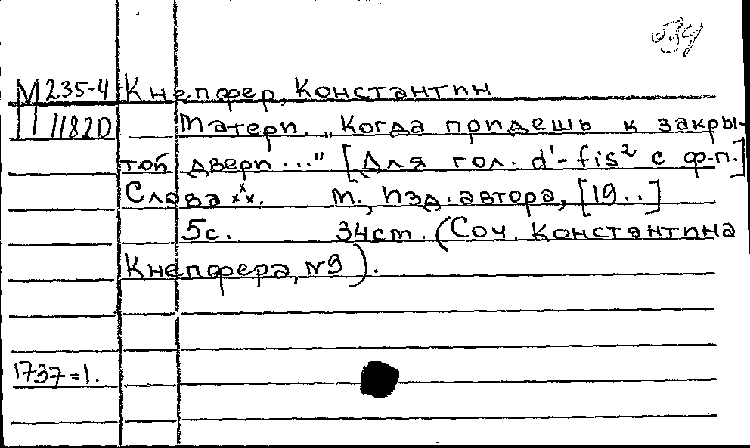 М 235-4 Кнепфер, Константин
П 1182D Матери. „Когда придешь к закры-
той двери..." [Для гол. d'-fis² с ф.-п.]
Слова ***. М., Изд. автора, [19..]
5с. 34см. (Соч. Константина
Кнепфера, №9).
1737=1.